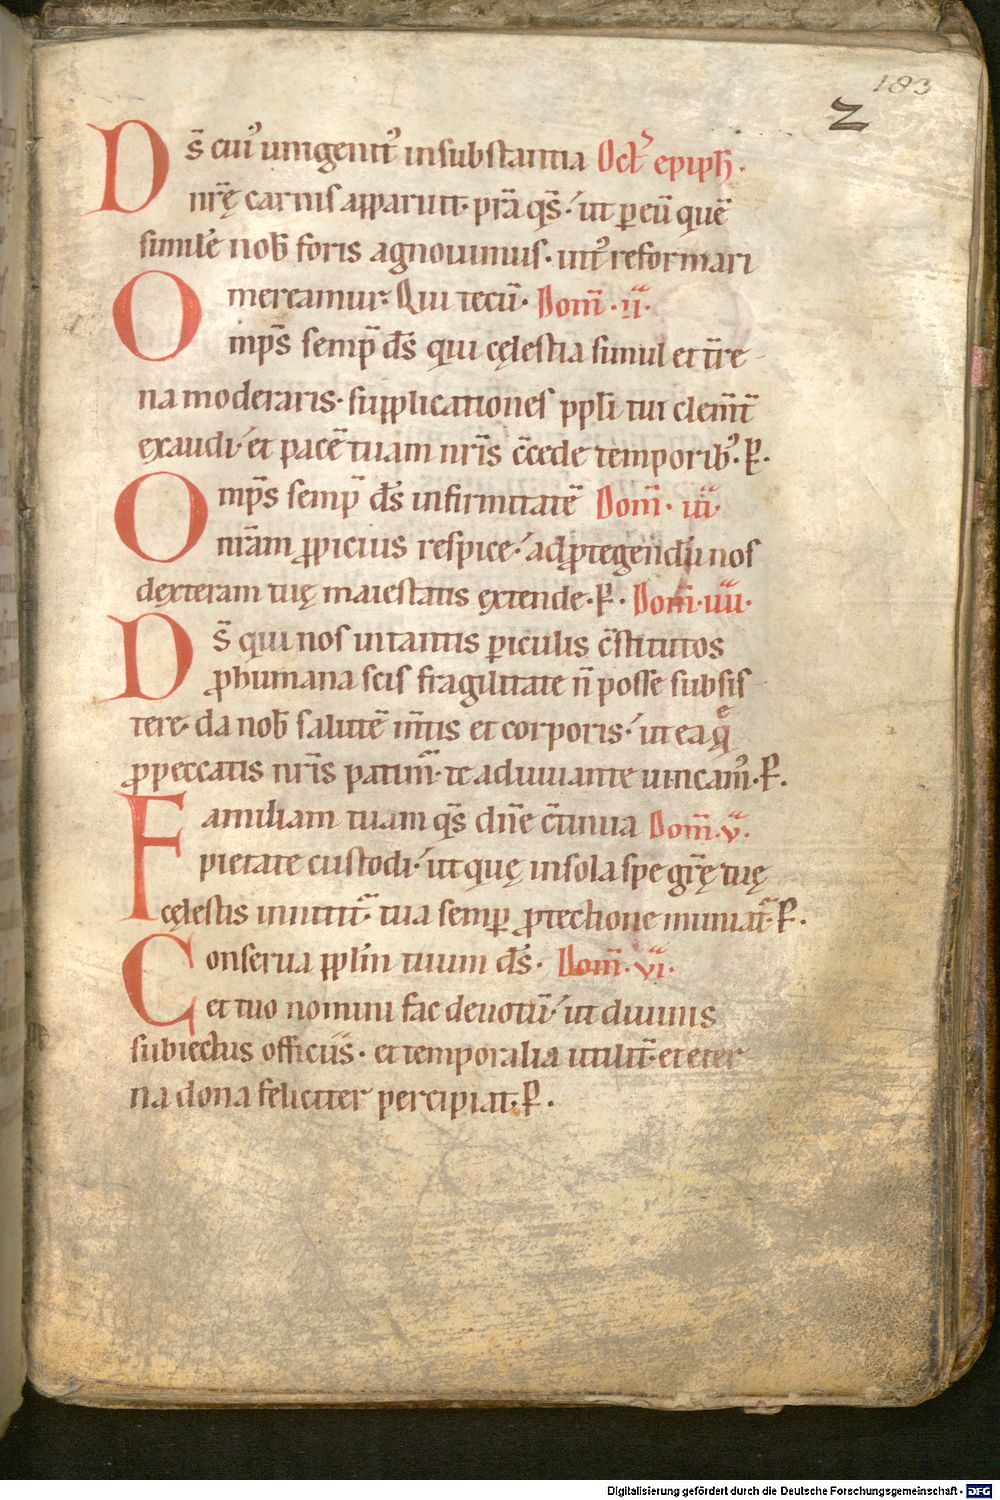 183
2
Ds̄ cui᷒ unigenit᷒ in substantia Oct̄ epiph̄.
nrę̄ carnis apparuit. pr̄a qs̄. ut ꝑ eū quē
simile᷒ nob̄ foris agnouimus. int᷒ reformari
mereamur. Qui tecū. Dom̄. ii.ᵃ
Omp̄s semp̄ ds̄ qui cęlestia simul et tr̄re
na moderaris. supplicationes ppl̄i tui clem̄t̄
exaudi. et pacē tuam nr̄is c̄cede temporib᷒. P̄.
Omp̄s semp̄ ds̄ infirmitatē Dom̄. iii.ᵃ
nr̄am ꝓpicius respice. ad ꝓtegendū nos
dexteram tuę maiestatis extende. P̄. Dom̄. iiii.ᵃ
Ds̄ qui nos in tantis ꝑiculis c̄stitutos
ꝓ humana scis fragilitate n̄ posse subsis
tere. da nob̄ salutē m̄tis et corporis. ut ea qͤ
ꝓ peccatis nr̄is patim᷒. te adiuuante uincam᷒. P̄.
Familiam tuam qs̄ dn̄e c̄tinua Dom̄. v.ᵃ
pietate custodi. ut quę in sola spe gr̄ę tuę
cęlestis innitit᷒. tua semp̱ ꝓtectione muniat᷒. P̄.
Conserua ppl̄m tuum ds̄. Dom̄. vi.ᵃ
et tuo nomini fac deuotū. ut diuinis
subiectus officiis. et temporalia utilit̄. et eter
na dona feliciter percipiat. P̄.
Digitalisierung gefördert durch die Deutsche Forschungsgemeinschaft - DFG